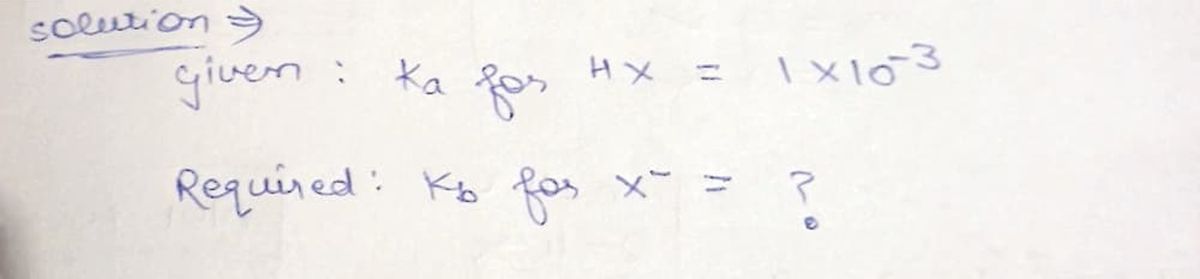 solution ⇒
given : Ka for HX = 1 × 10⁻³
Required : Kb for X⁻ = ?